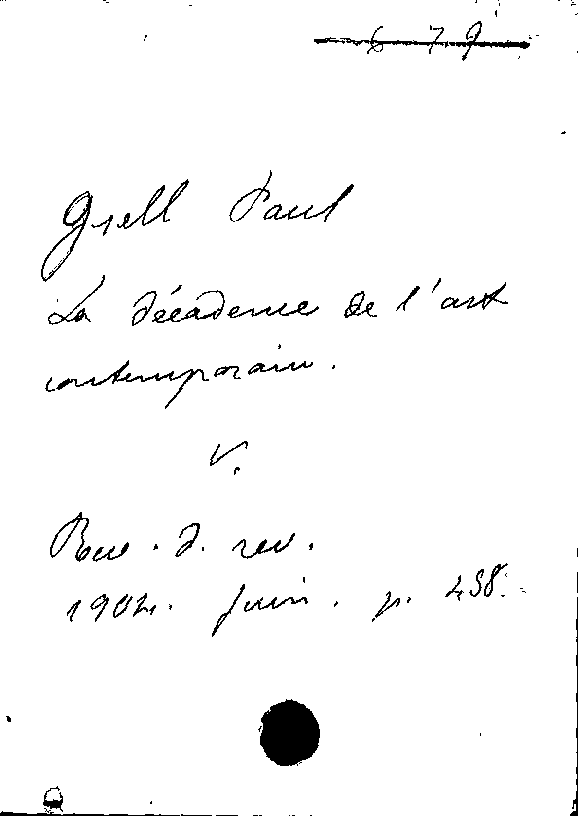 6 7 9
Gsell Paul
La décadence de l'art
contemporain.
V.
Rev. d. rev.
1902. juin. p. 458.